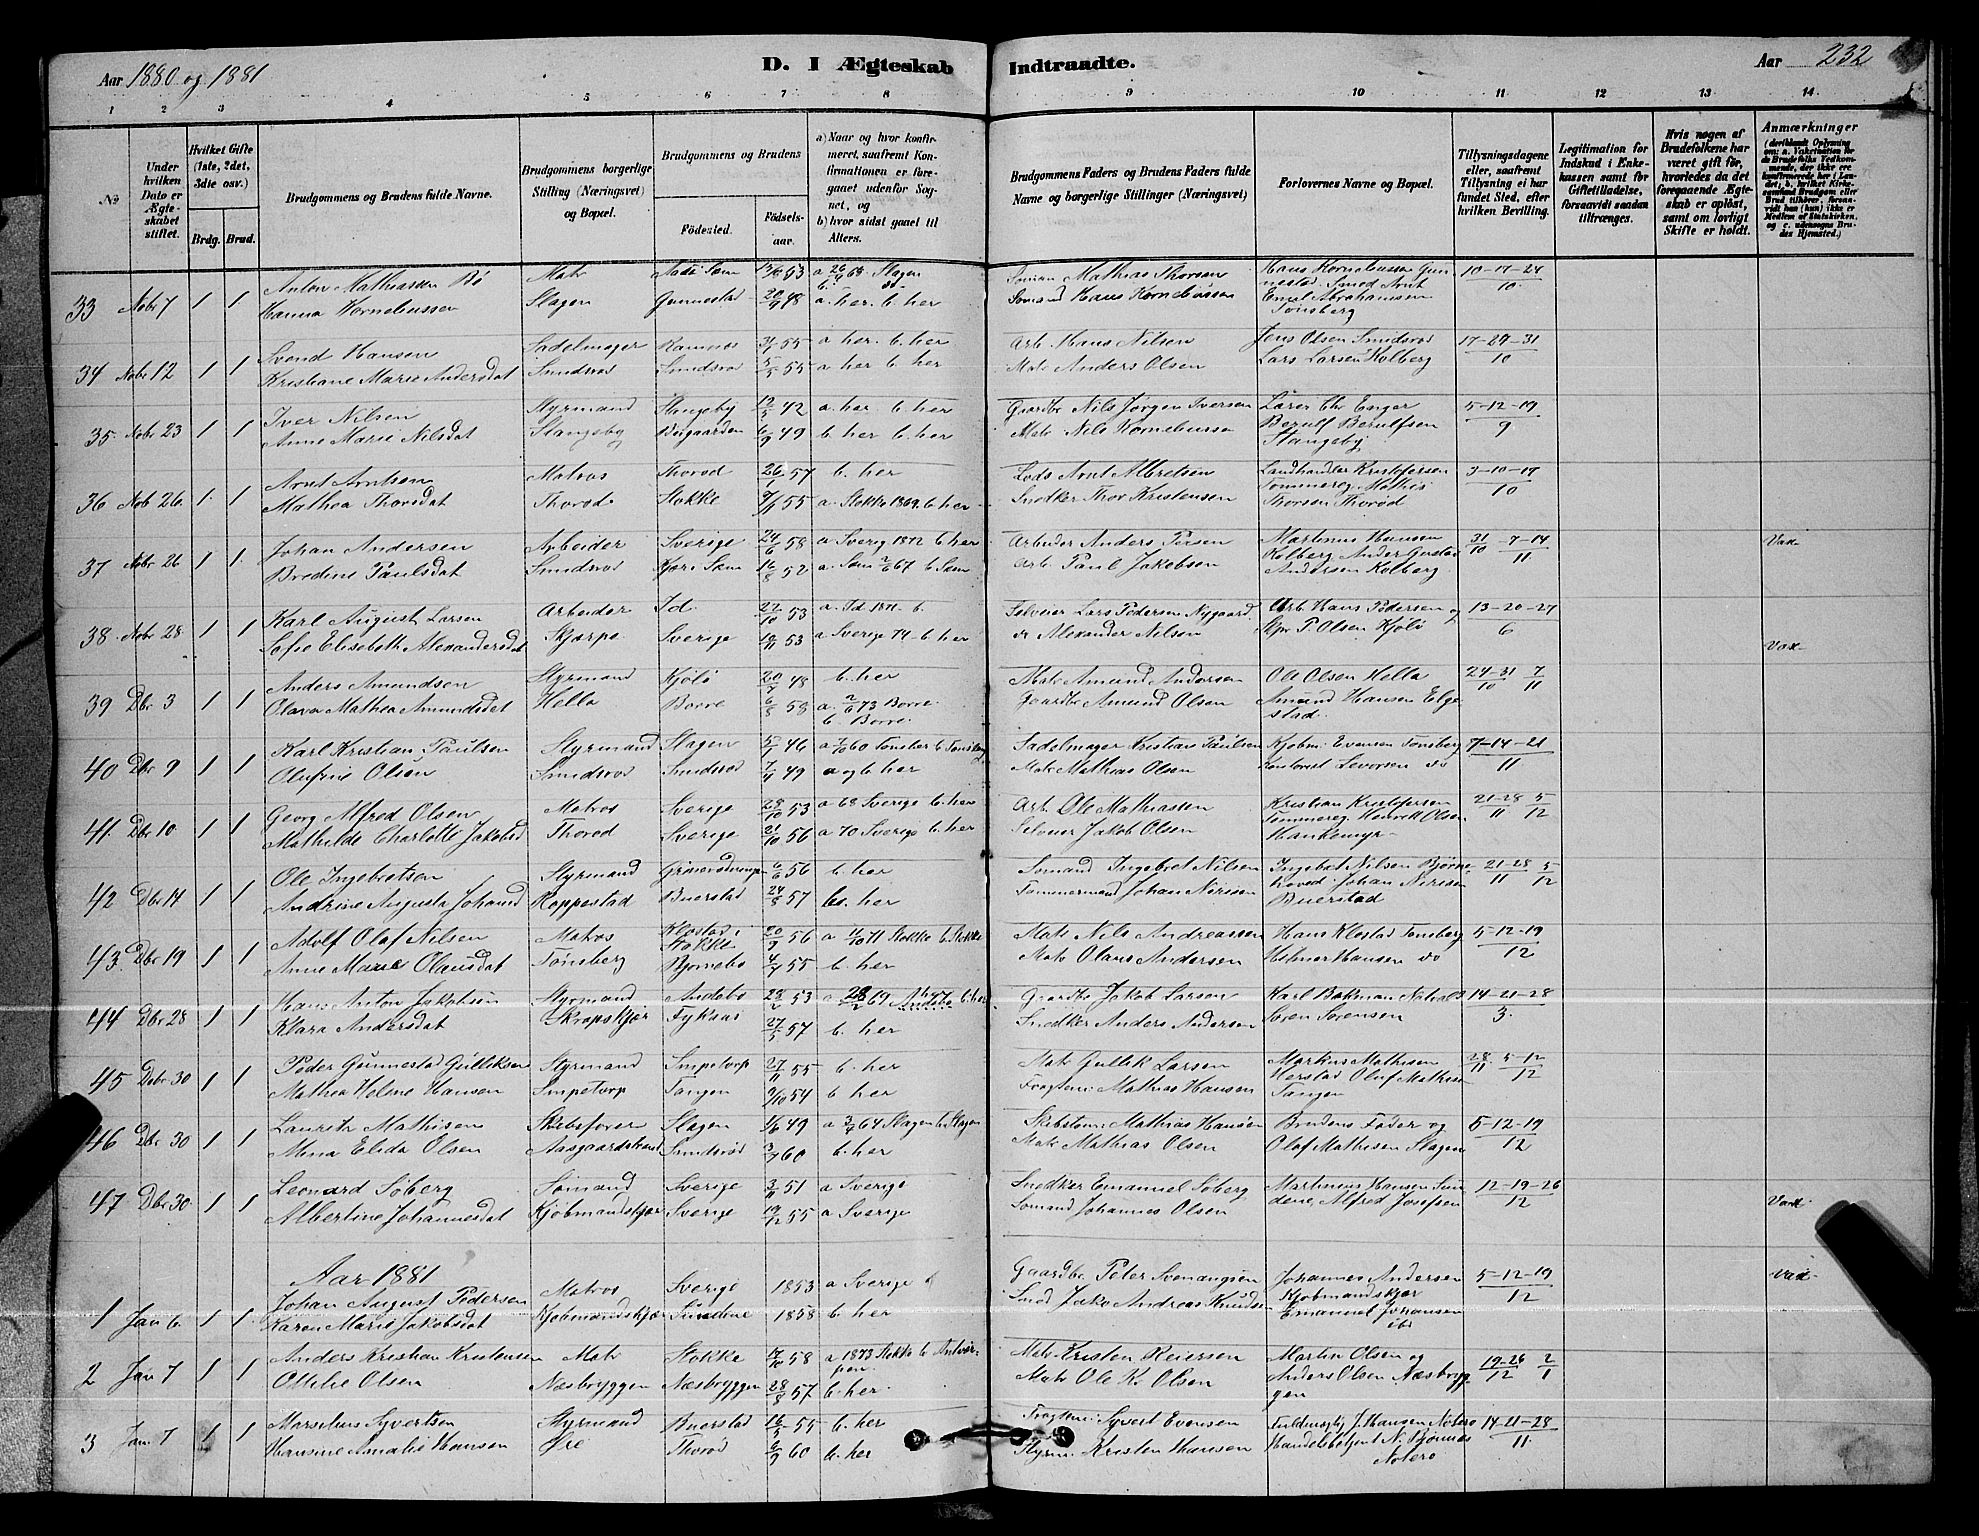 Aar 1880 og 1881
D. I Ægteskab Indtraadte.
Aar 232
1 2 3 4 5 6 7 8 9 10 11 12 13 14.
No
Under hvilken Dato er Ægteskabet stiftet.
Hvilket Gifte (1ste, 2det, 3die osv.)
Brdg. Brud.
Brudgommens og Brudens fulde Navne.
Brudgommens borgerlige Stilling (Næringsvei) og Bopæl.
Brudgommens og Brudens
Fødested. Fødselsaar.
a) Naar og hvor konfirmeret, saafremt Konfirmationen er foregaaet udenfor Sognet, og
b) hvor sidst gaaet til Alters.
Brudgommens Faders og Brudens Faders fulde Navne og borgerlige Stillinger (Næringsvei)
Forlovernes Navne og Bopæl.
Tillysningsdagene eller, saafremt Tillysning ei har fundet Sted, efter hvilken Bevilling.
Legitimation for Indskud i Enkekassen samt for Giftetilladelse, forsaavidt saadan tiltrænges.
Hvis nogen af Brudefolkene har været gift før, hvorledes da det foregaaende Ægteskab er opløst, samt om lovligt Skifte er holdt.
Anmærkninger
33 Nobr 7 1 1 Anton Mathiassen Bø Matr 53 a 26/9 68 Slagen Mathias Thorsen Hans Kornebussen 10-17-24/10
Hanna Kornebussen Slagen Gunnestad 20/9 48 a. her. b. her Sømand Hans Kornebussen Emil Abrahamsen Tønsberg
34 Nobr 12 1 1 Svend Hansen Sadelmager Ramnæs 55 a her. b. her Arb. Hans Nilsen Jens Olsen Smidsrød 17-24-31/10
Kristiane Marie Andersdat Smidsrød Smidsrød 5/5 55 a her b. her Matr Anders Olsen Lars Larsen Kolberg
35 Nobr 23 1 1 Iver Nilsen Styrmand Stangeby 12/5 42 a. her b. her Gaardbr Nils Jørgen Iversen Lærer Chr Enger 5-12-19/9
Anne Marie Nilsdat Stangeby Borgaarden 6/9 49 b. her b. her Matr Nils Kornebussen Berulf Berulfsen Stangeby
36 Nobr 26 1 1 Arnt Arntsen Matros Thorød 57 b. her Lods Arnt Albretsen Landhandler Kristofersen 3-10-17/10
Mathea Thorsdat Thorød Stokke 55 a. Stokke 1869. b. her Snedker Thor Kristensen Tømmereg. Mathis Thorsen Thorød
37 Nobr 26 1 1 Johan Andersen Arbeider Sverige 24/6 58 a Sverig 1872 b. her Arbeider Anders Martinus Hansen 31/10 -7-14/11 Vax
Bredine Paulsdat Smidsrød Sem 16/8 52 a. Sem 67 b Sem Arb. Paul Jakobsen Kolberg Ander Gustav Andersen Kolberg.
38 Nobr 28 1 1 Karl August Larsen Arbeider Id 22/10 53 a. Id 1871. b. Selveier Lars Pedersen Nygaard Arb Hans Pedersen og 13-20-27/6
Sofie Elisebeth Alexandersdat Skjerpe Sverige 53 a Sverige 74 - b. her Alexander Nilsen P. Olsen Kjølø Vax
39 Dbr 3 1 1 Anders Amundsen Styrmand Kjølø 20/7 48 b. her Matr Amund Andersen Ole Olsen Hella 24-31/10 7/11
Olava Mathea Amundsdat Hella Borre 6/8 58 a 2/6 73 Borre b. Borre. Gaardbr Amund Olsen Amund Hansen Elgestad.
40 Dbr 9 1 1 Karl Kristian Paulsen Styrmand Slagen 46 a 7/10 60 Tønsber b Tønsberg Sadelmager Kristian Paulsen Kjøbm: Evensen Tønsberg 7-14-21/11
Olufine Olsen Smidsrød Smidsrød 7/11 49 a og b her Matr Mathias Olsen Kontorist Levorsen do
41. Dbr 10 1 1 Georg Alfred Olsen Matros Sverige 28/10 53 a 68 Sverige b. her Arb. Ole Mathiassen Kristian Kristofersen 21-28/11 5/12
Mathilde Charlotte Jakobsd Thorød Sverige 21/10 56 a 70 Sverige b. her Selveier Jakob Olsen Tømmereg Henrik Olsen Hankemyr
42 Dbr 14 1 1 Ole Ingebretsen Styrmand 6/6 56 b. her Sømand Ingebret Nilsen Ingebet Nilsen Bjørnehoved 21-28/11 5/12
Andrine Augusta Johansd Roppestad Buerstad 24/8 57 b. her Tømmermand Johan Nersen Johan Nersen Buerstad
43. Dbr 19 1 1 Adolf Olaf Nilsen Matros Klostad i Stokke 20/9 56 a 11/10 71 Stokke b. Stokke Matr Nils Andreassen Hans Klostad Tønsberg 5-12-19/12
Anne Marie Olausdat Tønsberg Bjørnebo 4/7 55 b. her Matr Olaus Andersen Helmer Hansen do
44 Dbr 28 1 1 Hans Anton Jakobsen Styrmand Andebo 28/2 53 a 28/2 69 Andebo b. her Gaardbr Jakob Larsen Karl Bøkman 14-21-28/3
Klara Andersdat Skrapskjær Fyksaas 27/5 57 b. her Snedker Anders Andersen Søren Sørensen
45 Debr 30 1 1 Peder Gunnestad Gulliksen Styrmand Impetorp 27/11 55 b. her Matr Gullik Larsen Markus Mathisen 28/11 5-12/12
Mathea Helene Hansen Impetorp Tangen 54 b her Fragtem: Mathias Hansen Herstad Oluf Mathisen Tangen
46 Dbr 30 1 1 Lauritz Mathisen Skibsfører Slagen 1/6 49 a 64 Slagen b. Slagen Skibstøm: Mathias Hansen Brudens Fader og 5-12-19/12
Mina Elida Olsen Aasgaardstrand Smidsrød 3/7 60 b. her Matr Mathias Olsen Olaf Mathisen Slagen
47 Dbr 30 1 1 Leonard Søberg Sømand Sverige 3/11 51 a Sverige Snedker Emanuel Søberg Martinus Hansen Sundene 12-19-26/12
Albertine Johannesdat Kjøbmandskjær Sverige 19/12 55 a Sverige Sømand Johannes Olsen Alfred Josefsen Vax
Aar 1881
1 Jan 6. 1 1 Johan August Pedersen Matros Sverige 1853 a Sverige b Gaardbr Peter Johannes Andersen 5-12-19/12 Vax
Karen Marie Jakobsdat Kjøbmandskjær Sundene 1858 b. her Smed Jakob Andreas Knudsen Kjøbmandskjær Emanuel Johansen ibd
2 Jan 7 1 1 Anders Kristian Kristensen Matr Stokke 17/10 58 a 1873 Stokke b Antverpen Matr Kristen Reiersen Martin Olsen og 19-26/12 2/1
Ottilie Olsen Næsbryggen Næsbryggen 28/8 57 b. her Matr Ole K. Olsen Anders Olsen Næsbryggen
3 Jan 7 1 1 Marselius Syvertsen Styrmand Buerstad 16/5 55 b. her Fragtem: Syvert Evensen Fuldmægtig J. Hansen Nøterø 14-21-28/11
Hansine Amalie Hansen Øre Thorød 6/9 60 b. her Styrm: Kristen Hansen Handelsbetjent N. Bjønnes Nøterø